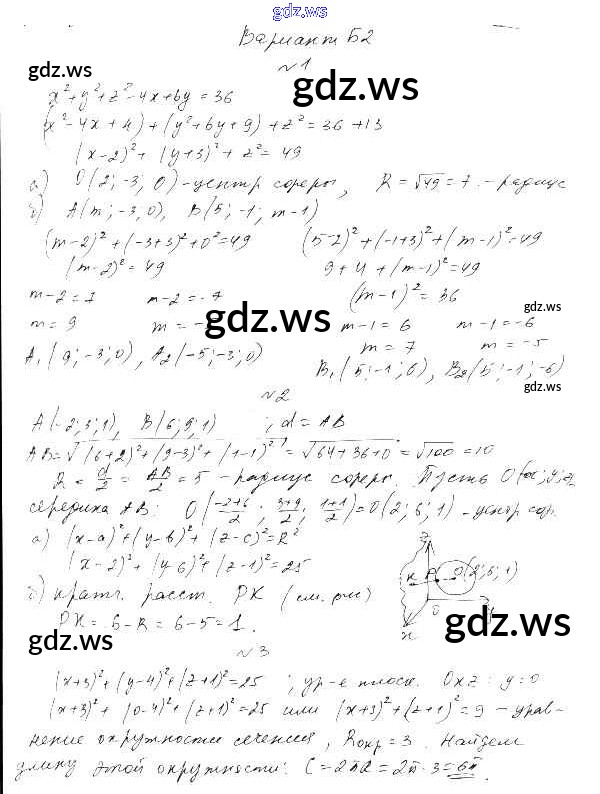 gdz.ws
Вариант Б2
№1
x²+y²+z²-4x+6y=36
(x²-4x+4)+(y²+6y+9)+z²=36+13
(x-2)²+(y+3)²+z²=49
а) O(2;-3;0)-центр сферы, R=√49=7 - радиус
б) A(m;-3;0), B(5;-1;m-1)
(m-2)²+(-3+3)²+0²=49 (5-2)²+(-1+3)²+(m-1)²=49
(m-2)²=49 9+4+(m-1)²=49
m-2=7 m-2=-7 (m-1)²=36
m=9 m=- m-1=6 m-1=-6
m=7 m=-5
A₁(9;-3;0), A₂(-5;-3;0) B₁(5;-1;6), B₂(5;-1;-6)
№2
A(-2;3;1), B(6;9;1) ; d=AB
AB=√(6+2)²+(9-3)²+(1-1)²=√64+36+0=√100=10
R=d/2=AB/2=5 - радиус сферы. Пусть O(x;y;z)
середина AB: O(-2+6/2; 3+9/2; 1+1/2)=O(2;6;1)-центр сф.
а) (x-a)²+(y-b)²+(z-c)²=R²
(x-2)²+(y-6)²+(z-1)²=25
б) кратч. расст. PK (см. рис)
PK=6-R=6-5=1.
z
K P O(2;6;1)
O y
x
№3
(x+3)²+(y-4)²+(z+1)²=25 ; ур-е плоск. Oxz: y=0
(x+3)²+(0-4)²+(z+1)²=25 или (x+3)²+(z+1)²=9 - урав-
нение окружности сечения, Rокр=3. Найдем
длину этой окружности: C=2πR=2π·3=6π.
gdz.ws
gdz.ws
gdz.ws
gdz.ws
gdz.ws
gdz.ws
gdz.ws
gdz.ws
gdz.ws
gdz.ws